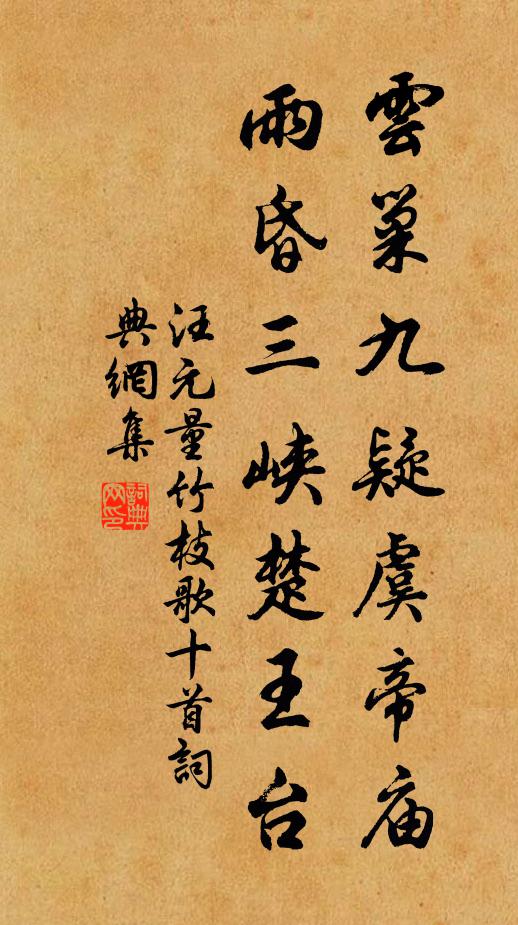 雲巢九疑虞帝庙
雨昏三峡楚王台
汪元量竹枝歌十首詞
典網集
詞典
网印